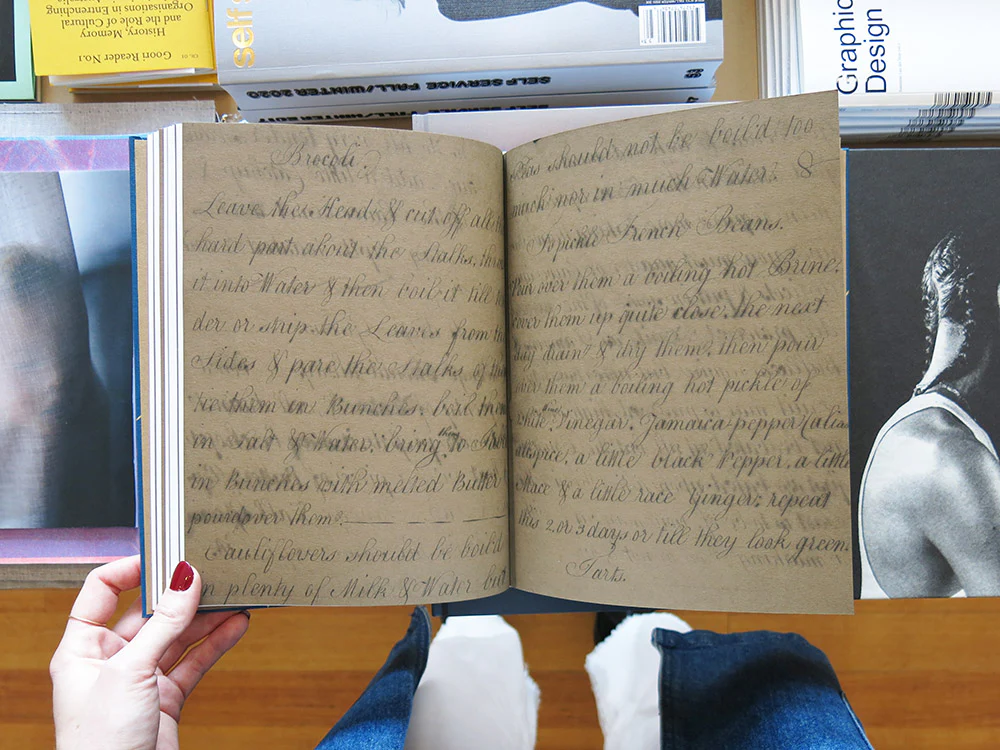 Goori Reader No.1
History, Memory
and the Role of Cultural
Organisations in Entrenching
self
SELF SERVICE FALL/WINTER 2020
Graphic
Design
Brocoli.
Leave the Head, & cut off all
hard part about the Stalks,
it into Water & then boil it till
der or strip the Leaves from
Sides & pare the Stalks of
tie them in Bunches, boil them
in Salt & Water, bring them to
in Bunches with melted Butter
pourd over them.
Cauliflowers should be boild
in plenty of Milk & Water but
should not be boil'd too
much nor in much Water. &
To pickle French Beans.
Pour over them a boiling hot Brine,
cover them up quite close, the next
day drain & dry them, then pour
over them a boiling hot pickle of
white Vinegar, Jamaica pepper (alias
allspice, a little black Pepper, a little
Mace & a little race Ginger; repeat
this 2 or 3 days or till they look green.
Tarts.